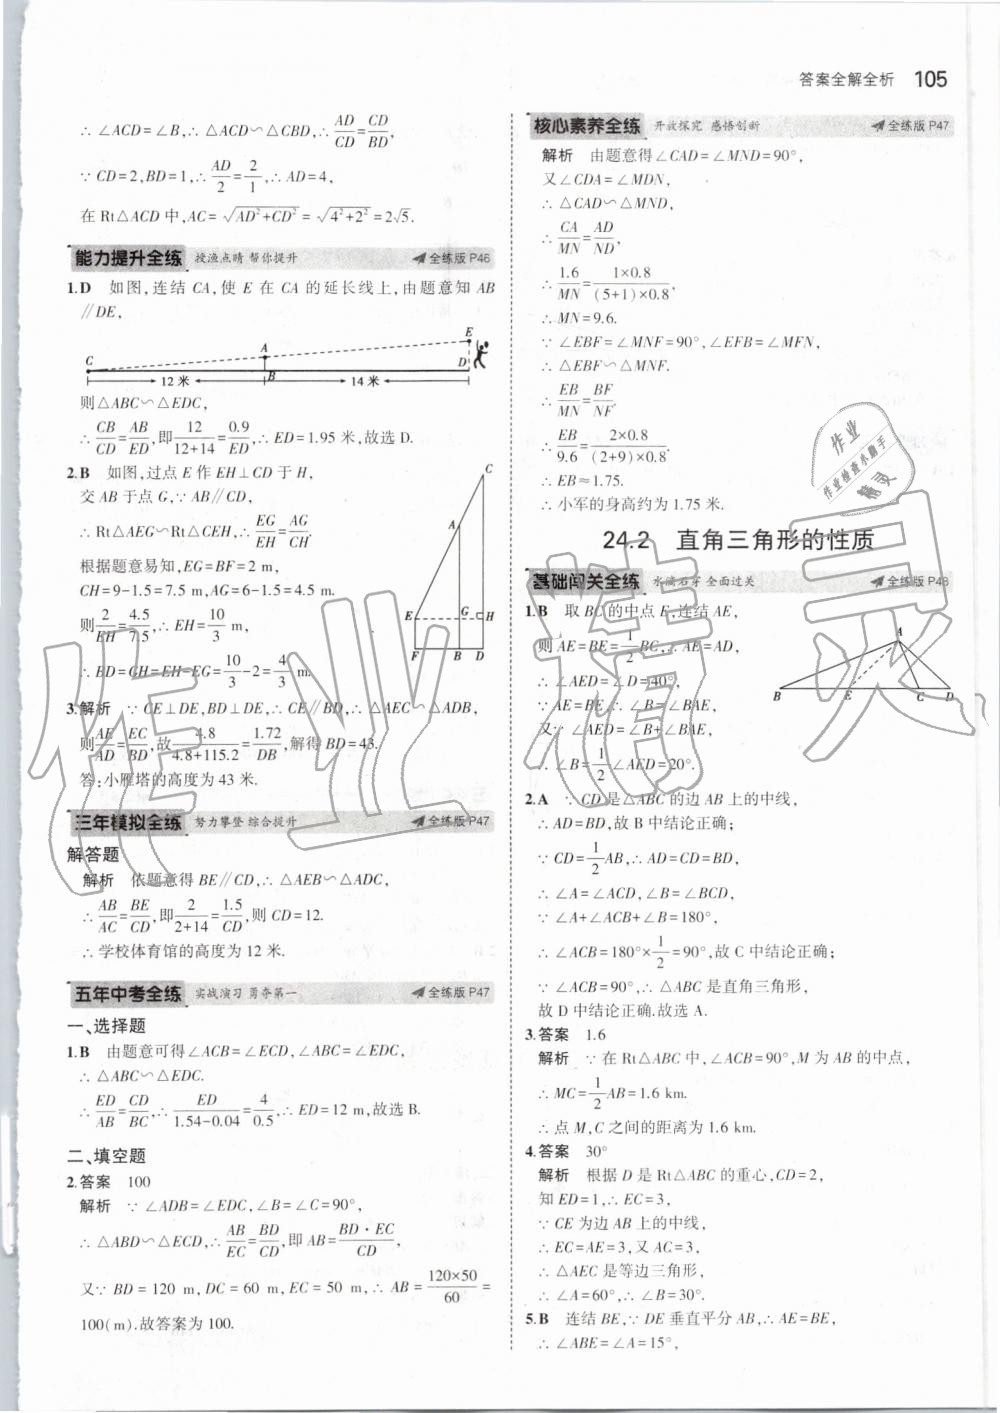 答案全解全析 105
∴ ∠ACD=∠B,∴ △ACD∽△CBD,∴ AD/CD=CD/BD,
∵ CD=2,BD=1,∴ AD/2=2/1,∴ AD=4,
在 Rt△ACD 中,AC=√(AD²+CD²)=√(4²+2²)=2√5.
能力提升全练 授渔点睛 帮你提升 全练版 P46
1.D 如图,连结 CA,使 E 在 CA 的延长线上,由题意知 AB
∥DE,
C A B E D
12 米 14 米
则△ABC∽△EDC,
∴ CB/CD=AB/ED,即12/(12+14)=0.9/ED,∴ ED=1.95 米,故选 D.
2.B 如图,过点 E 作 EH⊥CD 于 H,
交 AB 于点 G,∵ AB∥CD,
∴ Rt△AEG∽Rt△CEH,∴ EG/EH=AG/CH.
根据题意易知,EG=BF=2 m,
CH=9-1.5=7.5 m,AG=6-1.5=4.5 m.
则2/EH=4.5/7.5,∴ EH=10/3 m,
∴ BD=GH=EH-EG=10/3-2=4/3 m.
C A E G H F B D
3.解析 ∵ CE⊥DE,BD⊥DE,∴ CE∥BD,∴ △AEC∽△ADB,
则AE/AD=EC/BD,故4.8/(4.8+115.2)=1.72/DB,解得 BD=43.
答:小雁塔的高度为 43 米.
三年模拟全练 努力攀登 综合提升 全练版 P47
解答题
解析 依题意得 BE∥CD,∴ △AEB∽△ADC,
∴ AB/AC=BE/CD,即2/(2+14)=1.5/CD,则 CD=12.
∴ 学校体育馆的高度为 12 米.
五年中考全练 实战演习 勇夺第一 全练版 P47
一、选择题
1.B 由题意可得∠ACB=∠ECD,∠ABC=∠EDC,
∴ △ABC∽△EDC.
∴ ED/AB=CD/BC,∴ ED/(1.54-0.04)=4/0.5,∴ ED=12 m,故选 B.
二、填空题
2.答案 100
解析 ∵ ∠ADB=∠EDC,∠B=∠C=90°,
∴ △ABD∽△ECD,∴ AB/EC=BD/CD,即 AB=BD·EC/CD,
又∵ BD=120 m,DC=60 m,EC=50 m,∴ AB=120×50/60=
100(m).故答案为 100.
核心素养全练 开放探究 感悟创新 全练版 P47
解析 由题意得∠CAD=∠MND=90°,
又∠CDA=∠MDN,
∴ △CAD∽△MND,
∴ CA/MN=AD/ND,
∴ 1.6/MN=1×0.8/((5+1)×0.8),
∴ MN=9.6.
∵ ∠EBF=∠MNF=90°,∠EFB=∠MFN,
∴ △EBF∽△MNF.
∴ EB/MN=BF/NF.
∴ EB/9.6=2×0.8/((2+9)×0.8).
∴ EB≈1.75.
∴ 小军的身高约为 1.75 米.
24.2 直角三角形的性质
基础闯关全练 水滴石穿 全面过关 全练版 P48
1.B 取 BC 的中点 E,连结 AE,
则 AE=BE=1/2BC,∴ AE=AD,
∴ ∠AED=∠D=40°,
∵ AE=BE,∴ ∠B=∠BAE,
又∵ ∠AED=∠B+∠BAE,
∴ ∠B=1/2∠AED=20°.
A B E C D
2.A ∵ CD 是△ABC 的边 AB 上的中线,
∴ AD=BD,故 B 中结论正确;
∵ CD=1/2AB,∴ AD=CD=BD,
∴ ∠A=∠ACD,∠B=∠BCD,
∵ ∠A+∠ACB+∠B=180°,
∴ ∠ACB=180°×1/2=90°,故 C 中结论正确;
∵ ∠ACB=90°,∴ △ABC 是直角三角形,
故 D 中结论正确.故选 A.
3.答案 1.6
解析 ∵ 在 Rt△ABC 中,∠ACB=90°,M 为 AB 的中点,
∴ MC=1/2AB=1.6 km.
∴ 点 M,C 之间的距离为 1.6 km.
4.答案 30°
解析 根据 D 是 Rt△ABC 的重心,CD=2,
知 ED=1,∴ EC=3,
∵ CE 为边 AB 上的中线,
∴ EC=AE=3,又 AC=3,
∴ △AEC 是等边三角形,
∴ ∠A=60°,∴ ∠B=30°.
5.B 连结 BE,∵ DE 垂直平分 AB,∴ AE=BE,
∴ ∠ABE=∠A=15°,
作业
作业检查小助手
精灵
作业精灵